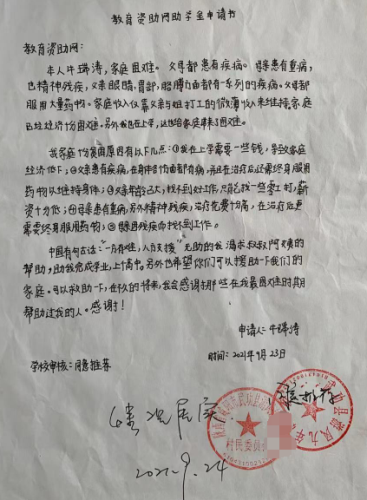 教育资助网助学金申请书
教育资助网:
本人牛瑞涛,家庭困难。父母都患有疾病。母亲患有重病,
也精神残疾,父亲眼睛,胃部,胳膊方面都有一系列的疾病。父母都
服用大量药物。家庭收入仅靠父亲与姐打工的微薄收入来维持家庭
已经经济十分困难。另外我也在上学,这也给家庭带来了困难。
我家庭十分贫困原因有以下几点:①我在上学需要一些钱,导致家庭
经济低下;②父亲患有疾病,在身体各方面都有病,而且在治疗后还需终身服用
药物以维持身体;③父亲年龄已大,找不到好工作,只自己找一些零工打,薪
资十分低;④母亲患有重病,另外精神残疾,治疗花费十分高,在治疗后更
需要终身服用药物;⑤姐因残疾而找不到工作。
中国有句古话:一方有难,八方支援。无助的我渴求叔叔阿姨的
帮助,助我完成学业,上个高中。另外也希望你们可以援助一下我们的
家庭。可以救助一下,在以后的将来,我会感谢那些在我最困难时期
帮助过我的人。感谢!
申请人:牛瑞涛
学校审核:同意推荐
时间:2021年9月23日
情况属实
村民委员会
2021.9.24